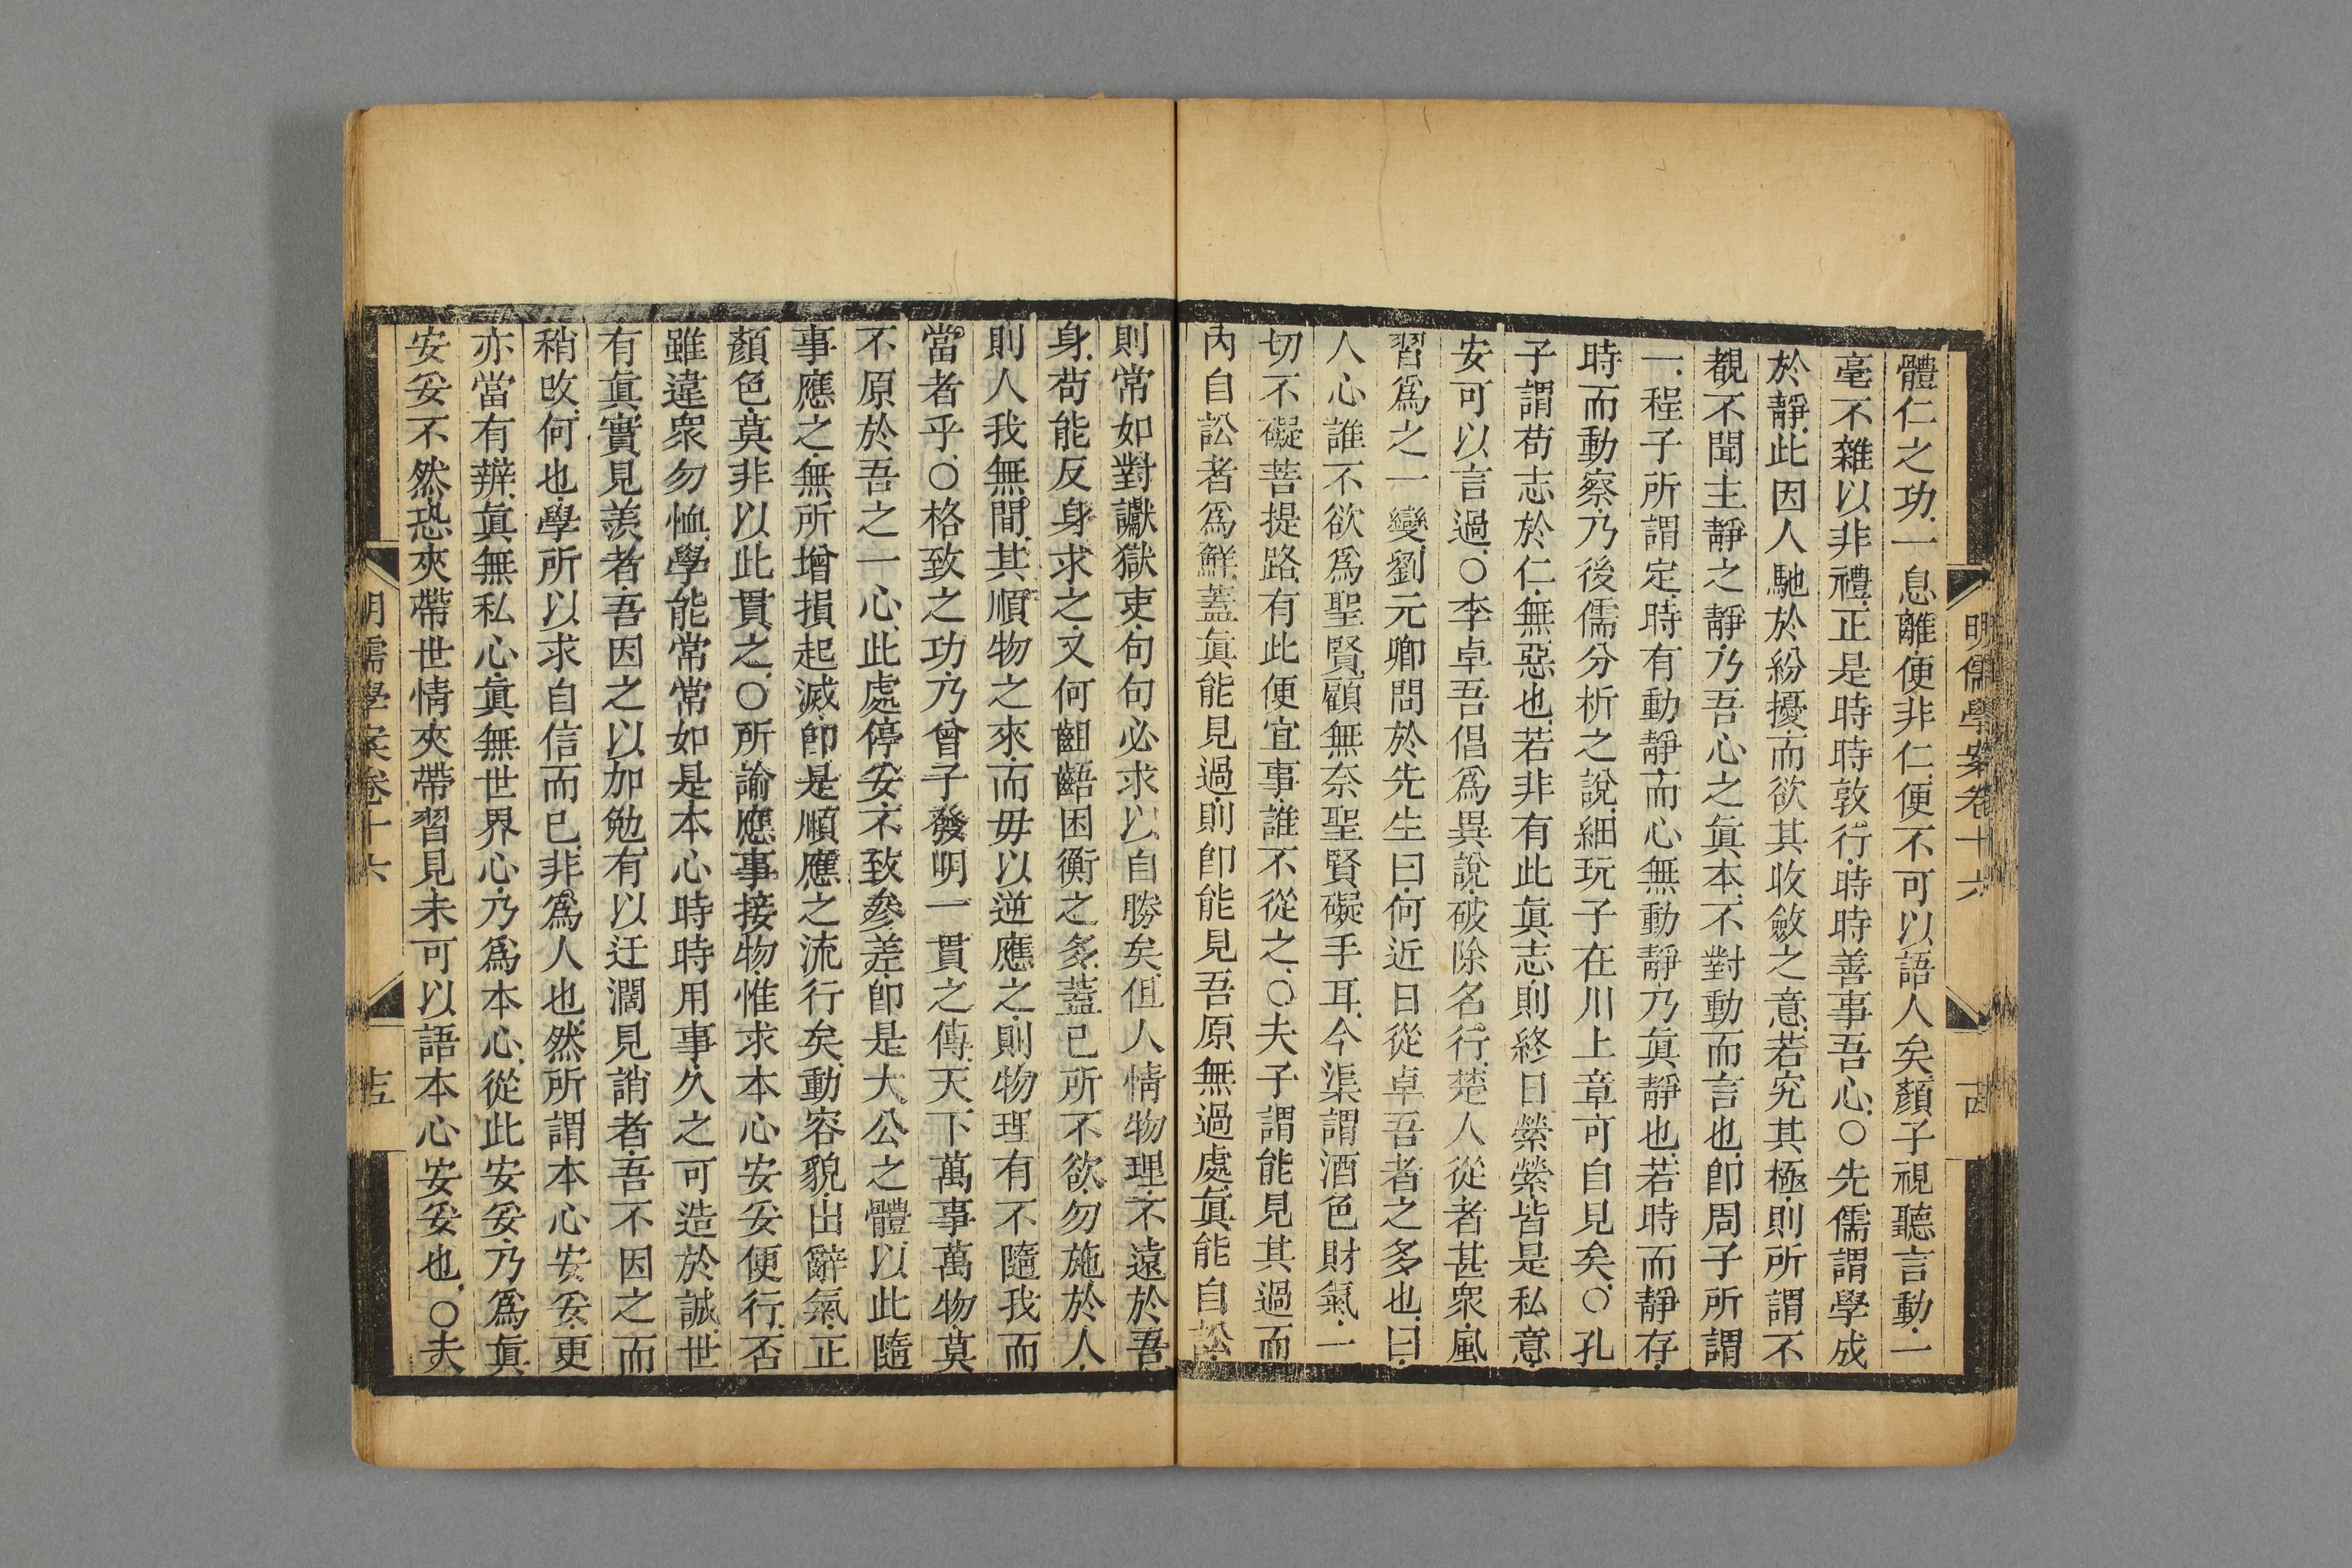 明儒學案卷十六
體仁之功.一息離.便非仁.便不可以語人矣.顏子視聽言動.一
毫不雜以非禮.正是時時敦行.時時善事吾心.○先儒謂學成
於靜.此因人馳於紛擾.而欲其收斂之意.若究其極.則所謂不
覩不聞.主靜之靜.乃吾心之眞本.不對動而言也.卽周子所謂
一.程子所謂定.時有動靜.而心無動靜.乃眞靜也.若時而靜存.
時而動察.乃後儒分析之說.細玩子在川上章.可自見矣.○孔
子謂苟志於仁.無惡也.若非有此眞志.則終日縈縈.皆是私意.
安可以言過.○李卓吾倡爲異說.破除名行.楚人從者甚衆.風
習爲之一變.劉元卿問於先生曰.何近日從卓吾者之多也.曰.
人心誰不欲爲聖賢.顧無奈聖賢礙手耳.今渠謂酒色財氣.一
切不礙菩提路.有此便宜事.誰不從之.○夫子謂能見其過而
內自訟者爲鮮.蓋眞能見過.則卽能見吾原無過處.眞能自訟.
則常如對讞獄吏.句句必求以自勝矣.但人情物理.不遠於吾
身.苟能反身求之.又何齟齬困衡之多.蓋己所不欲.勿施於人.
則人我無間.其順物之來.而毋以逆應之.則物理有不隨我而
當者乎.○格致之功.乃曾子發明一貫之傳.天下萬事萬物.莫
不原於吾之一心.此處停安.不致參差.卽是大公之體.以此隨
事應之.無所增損起滅.卽是順應之流行矣.動容貌.出辭氣.正
顏色.莫非以此貫之.○所諭應事接物.惟求本心安妥便行.否
雖違衆勿恤.學能常常如是.本心時時用事.久之可造於誠.世
有眞實見羨者.吾因之以加勉.有以迂濶見誚者.吾不因之而
稍改.何也.學所以求自信而已.非爲人也.然所謂本心安妥.更
亦當有辨.眞無私心.眞無世界心.乃爲本心.從此安妥.乃爲眞
安妥.不然.恐夾帶世情.夾帶習見.未可以語本心安妥也.○夫
明儒學案卷十六